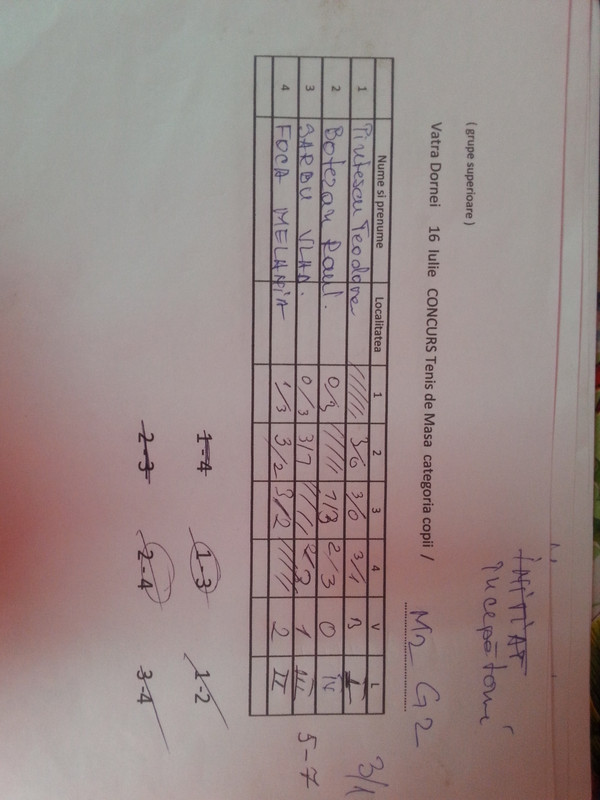 INIȚIAT
începători
( grupe superioare )
Vatra Dornei 16 Iulie CONCURS Tenis de Masa categoria copii / M2 G2
Nume si prenume Localitatea 1 2 3 4 V L
1 Teodora 3/0 3/0 3/1 3 I
2 Botezan Raul. 0/3 1/3 2/3 0 IV
3 SARBU VLAD. 0/3 3/1 2/3 1 III
4 FOCA MELANIA 1/3 3/2 3/2 2 II
3/1
5-7
1-4 1-3 1-2
2-3 2-4 3-4